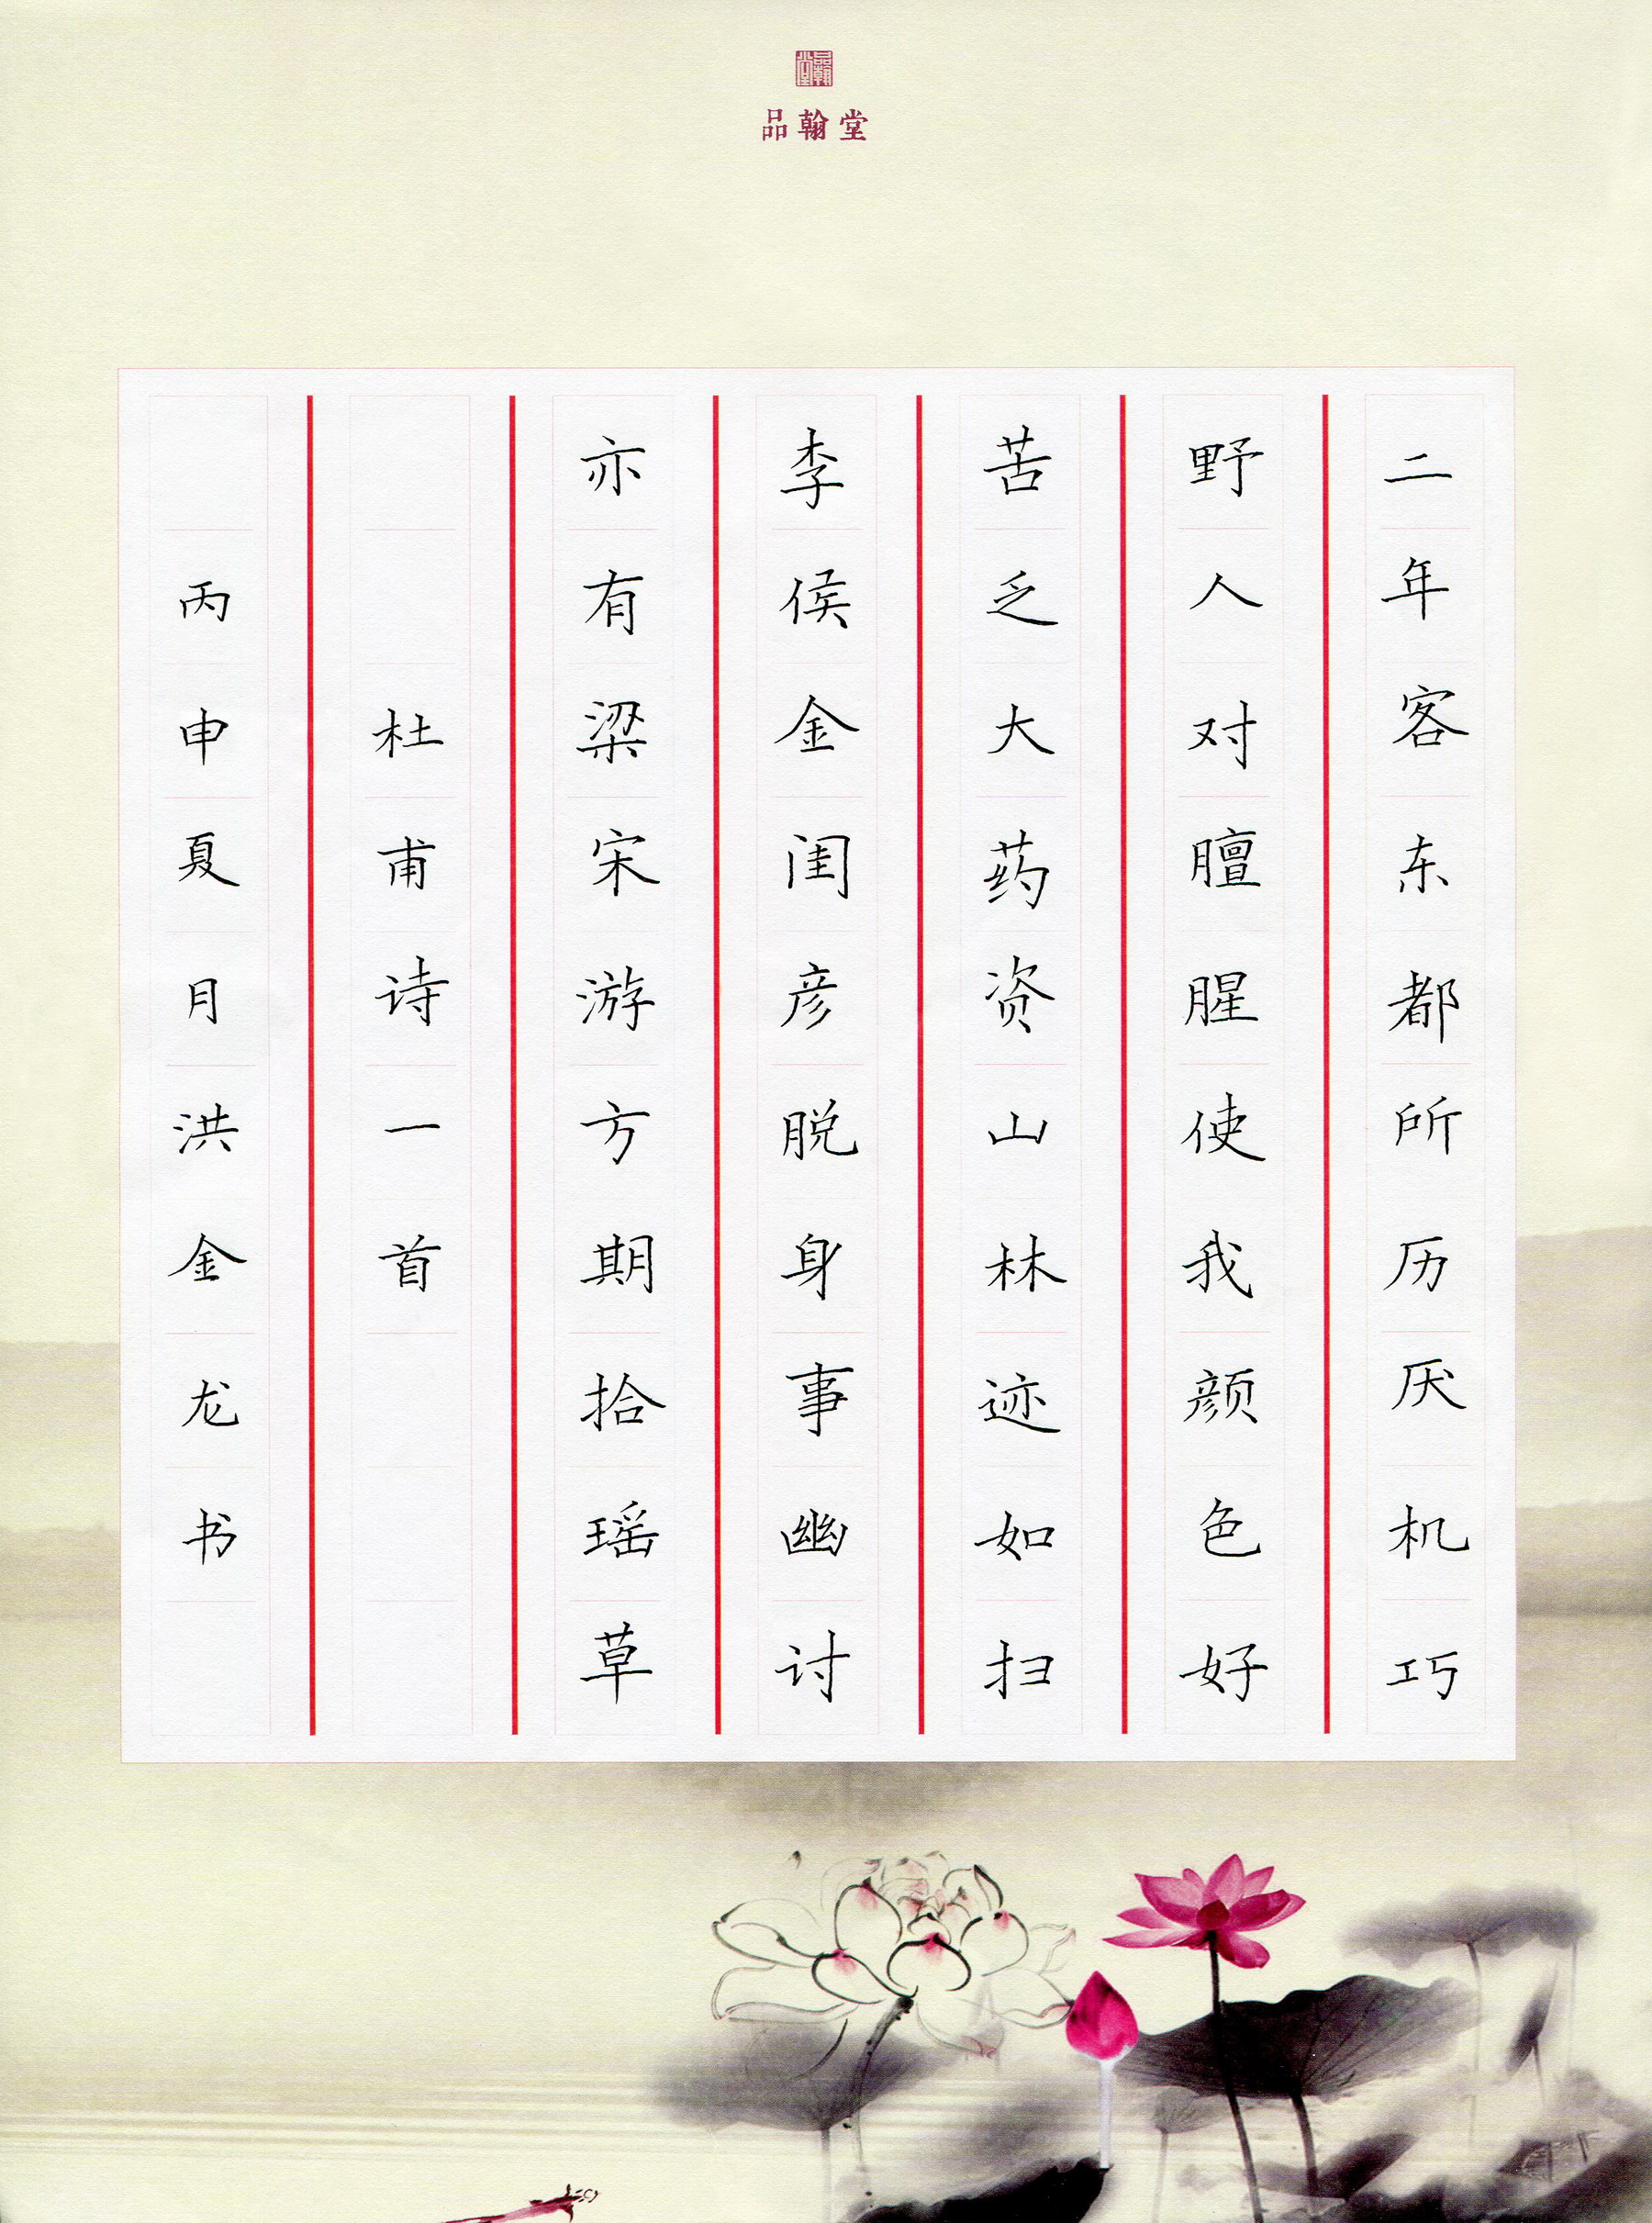 品翰堂
品翰堂
二年客东都所历厌机巧
野人对膻腥使我颜色好
苦乏大药资山林迹如扫
李侯金闺彦脱身事幽讨
亦有梁宋游方期拾瑶草
杜甫诗一首
丙申夏月洪金龙书